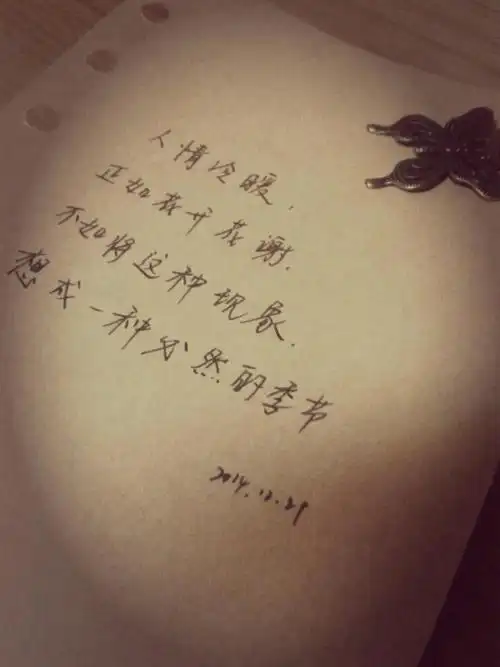 人情冷暖，
正如花开花谢，
不如将这种现象，
想成一种必然的季节
2014.12.29